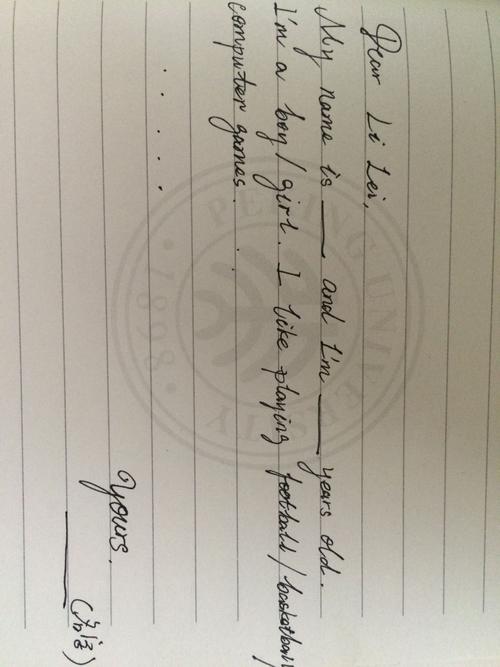 Dear Li Lei,
My name is ____ and I'm ____ years old.
I'm a boy / girl. I like playing football / basketball /
computer games. . .
. . . . .
Yours.
____ (名字)
PEKING UNIVERSITY
1898